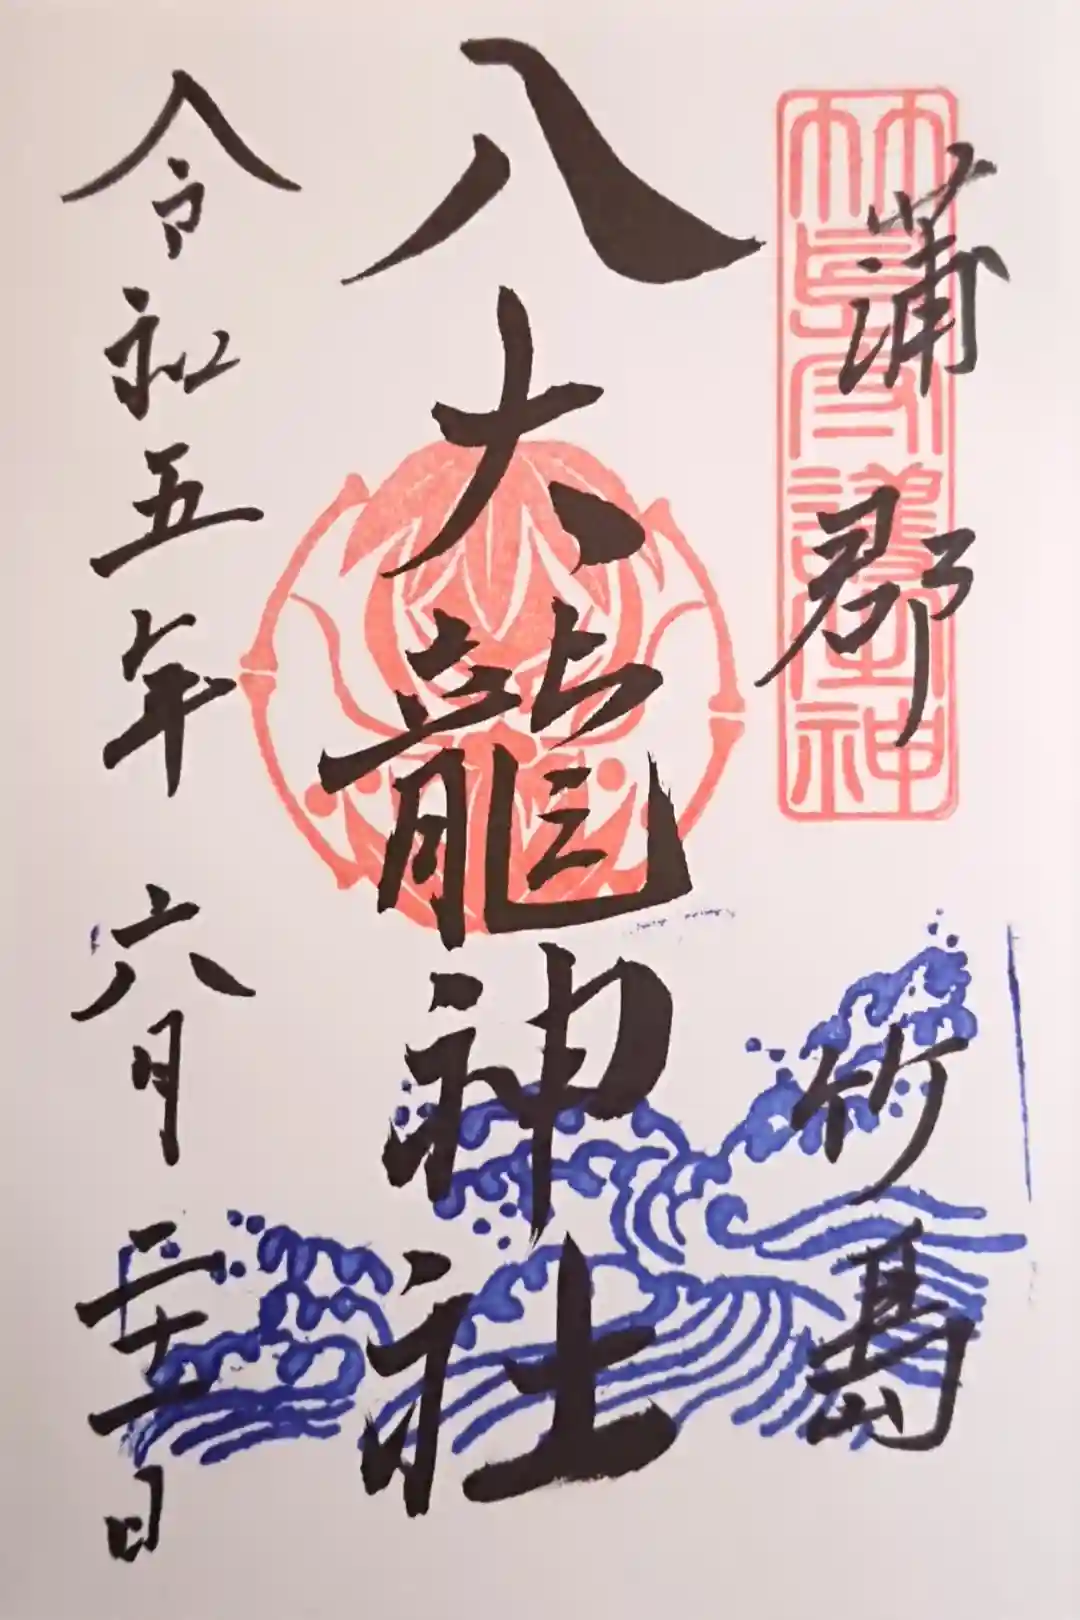 蒲郡 竹島
八大龍神社
令和五年 六月 二十一日